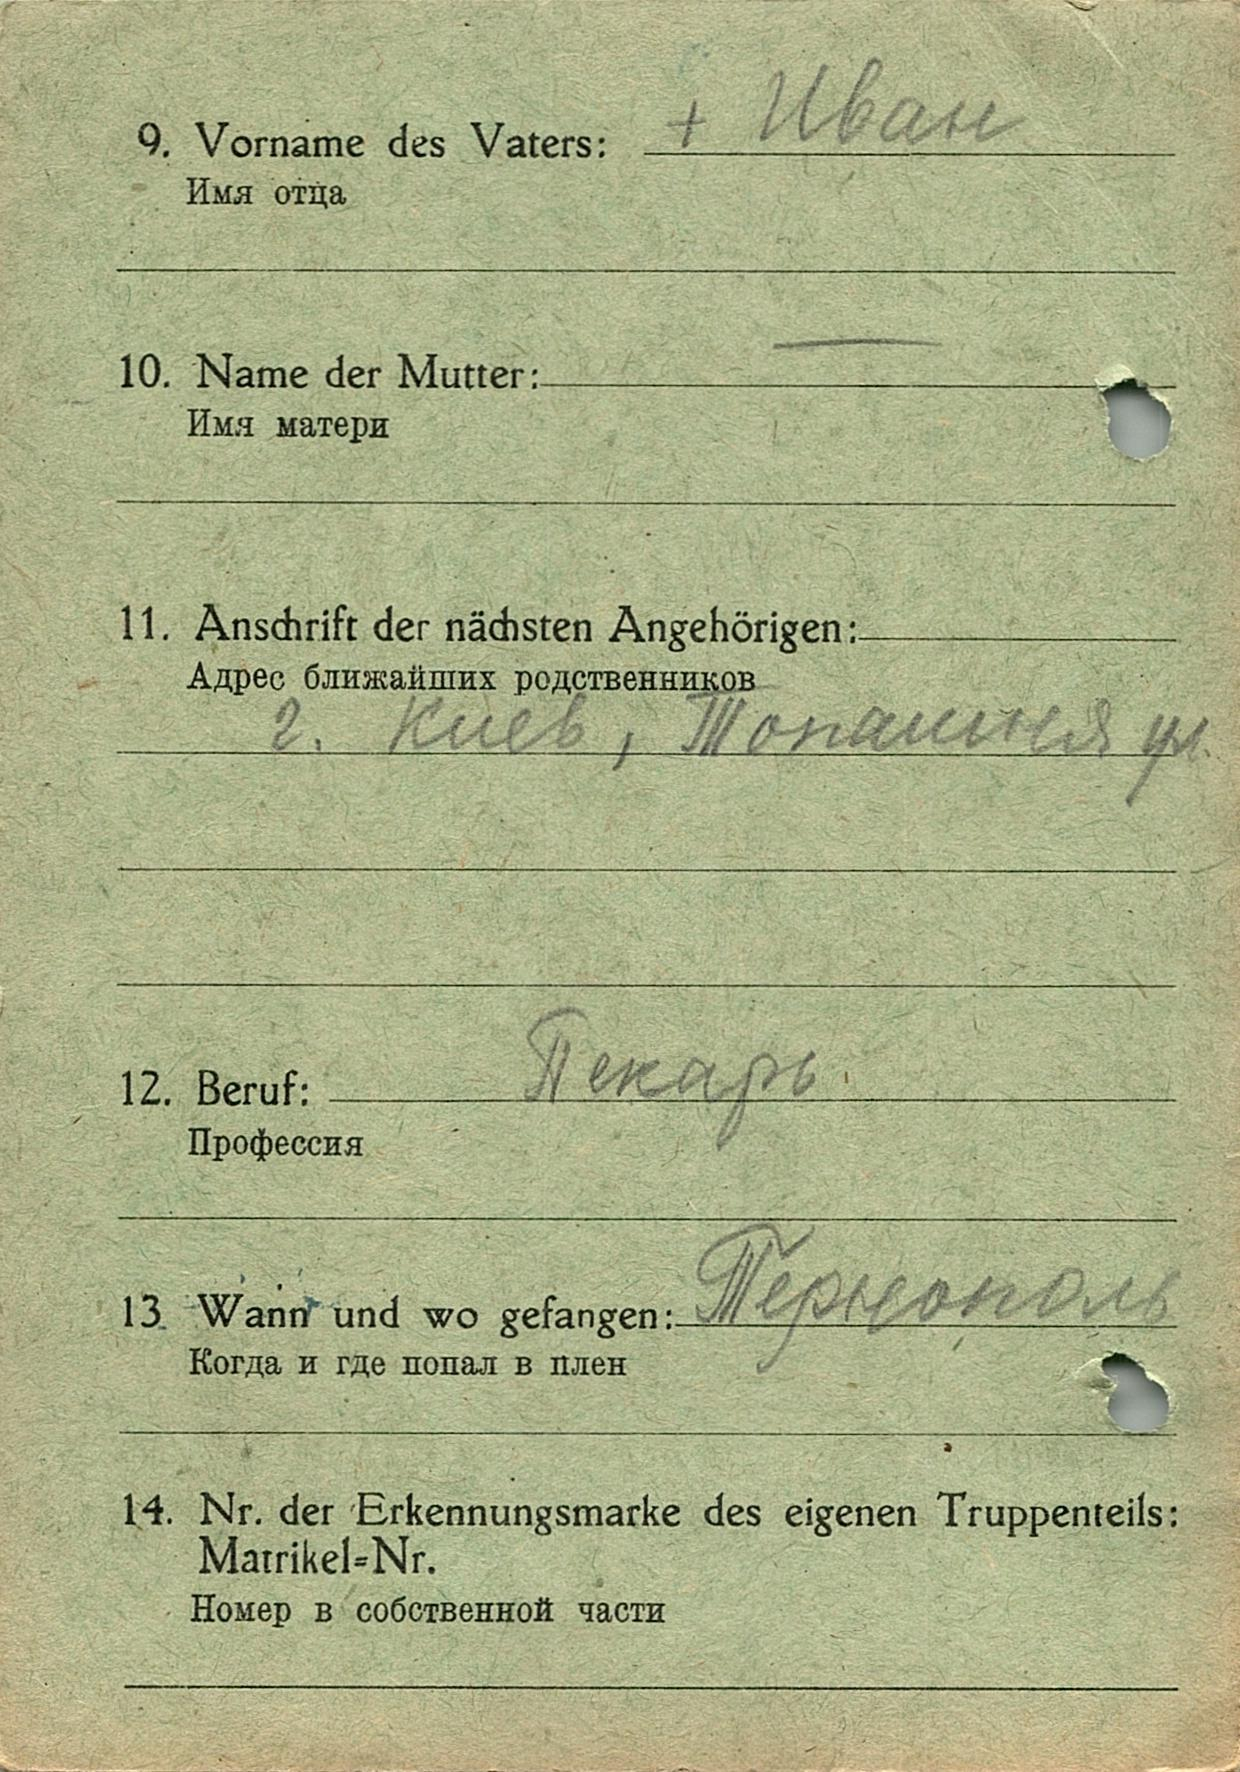 9. Vorname des Vaters: + Иван
Имя отца
10. Name der Mutter: —
Имя матери
11. Anschrift der nächsten Angehörigen:
Адрес ближайших родственников
г. Киев, ул.
12. Beruf: Пекарь
Профессия
13. Wann und wo gefangen: Тернополь
Когда и где попал в плен
14. Nr. der Erkennungsmarke des eigenen Truppenteils:
Matrikel=Nr.
Номер в собственной части